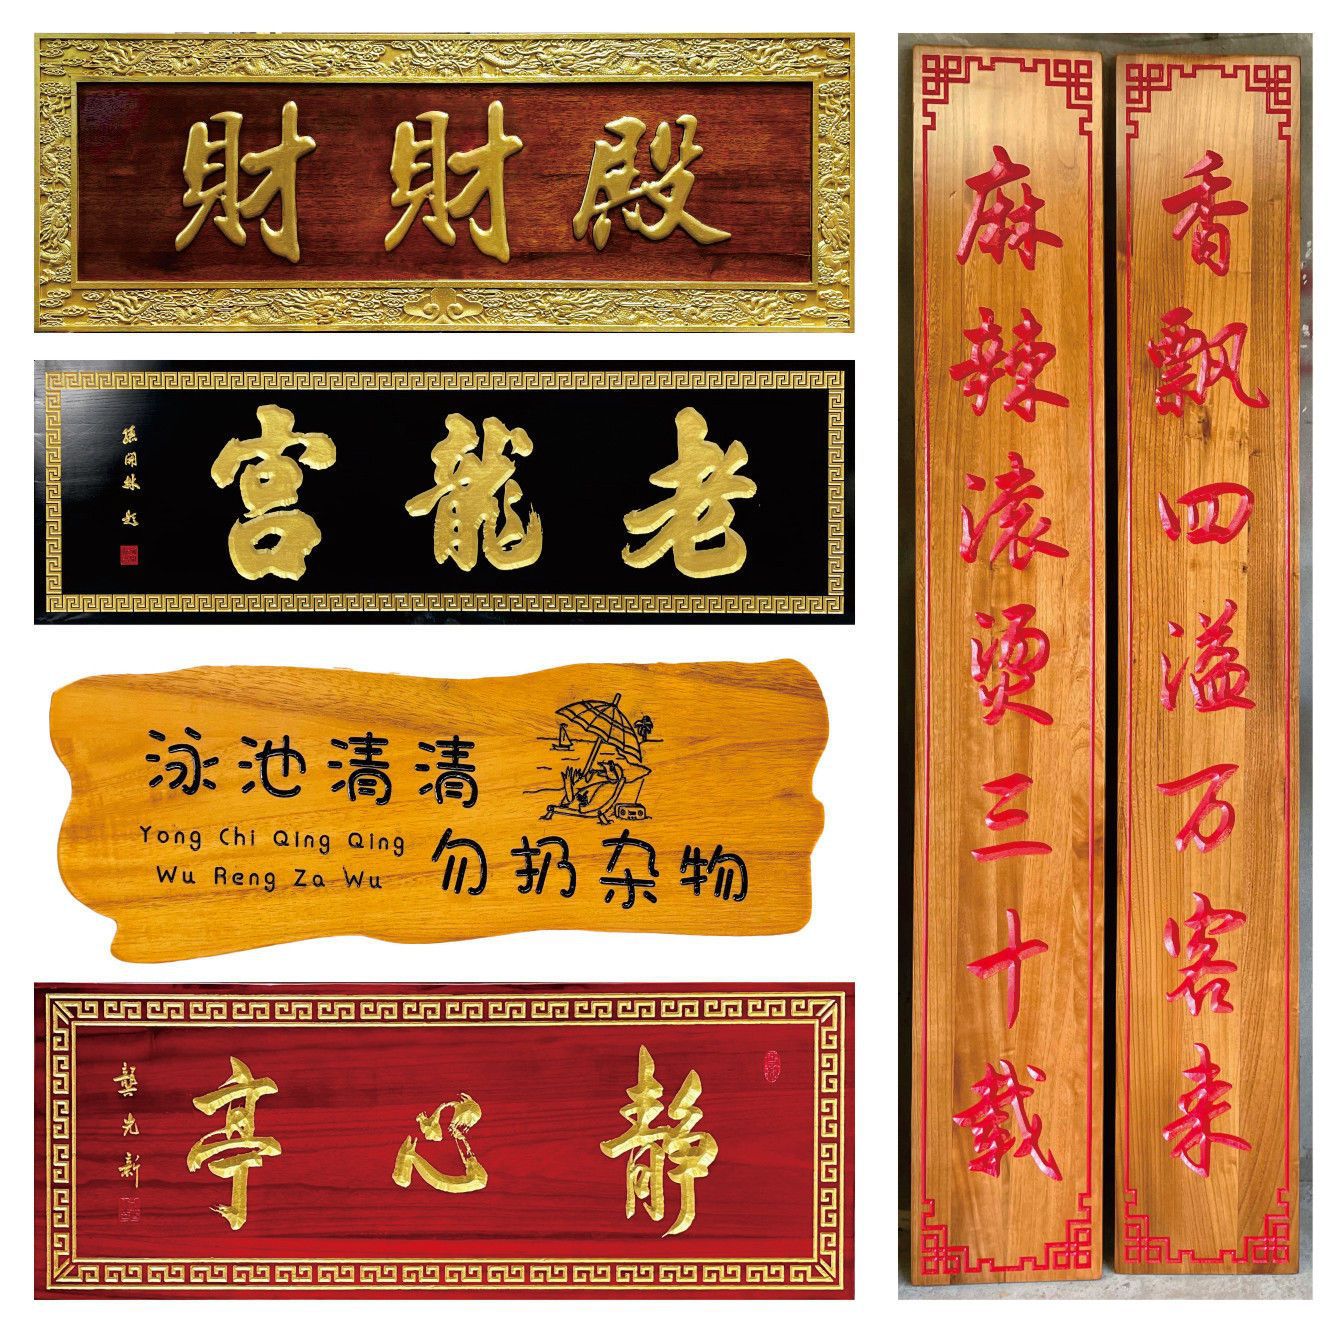 財財殿
老龍宮
孫開林 題
泳池清清
Yong Chi Qing Qing
勿扔杂物
Wu Reng Za Wu
静心亭
龔光新
麻辣滚烫三十载
香飘四溢万客来